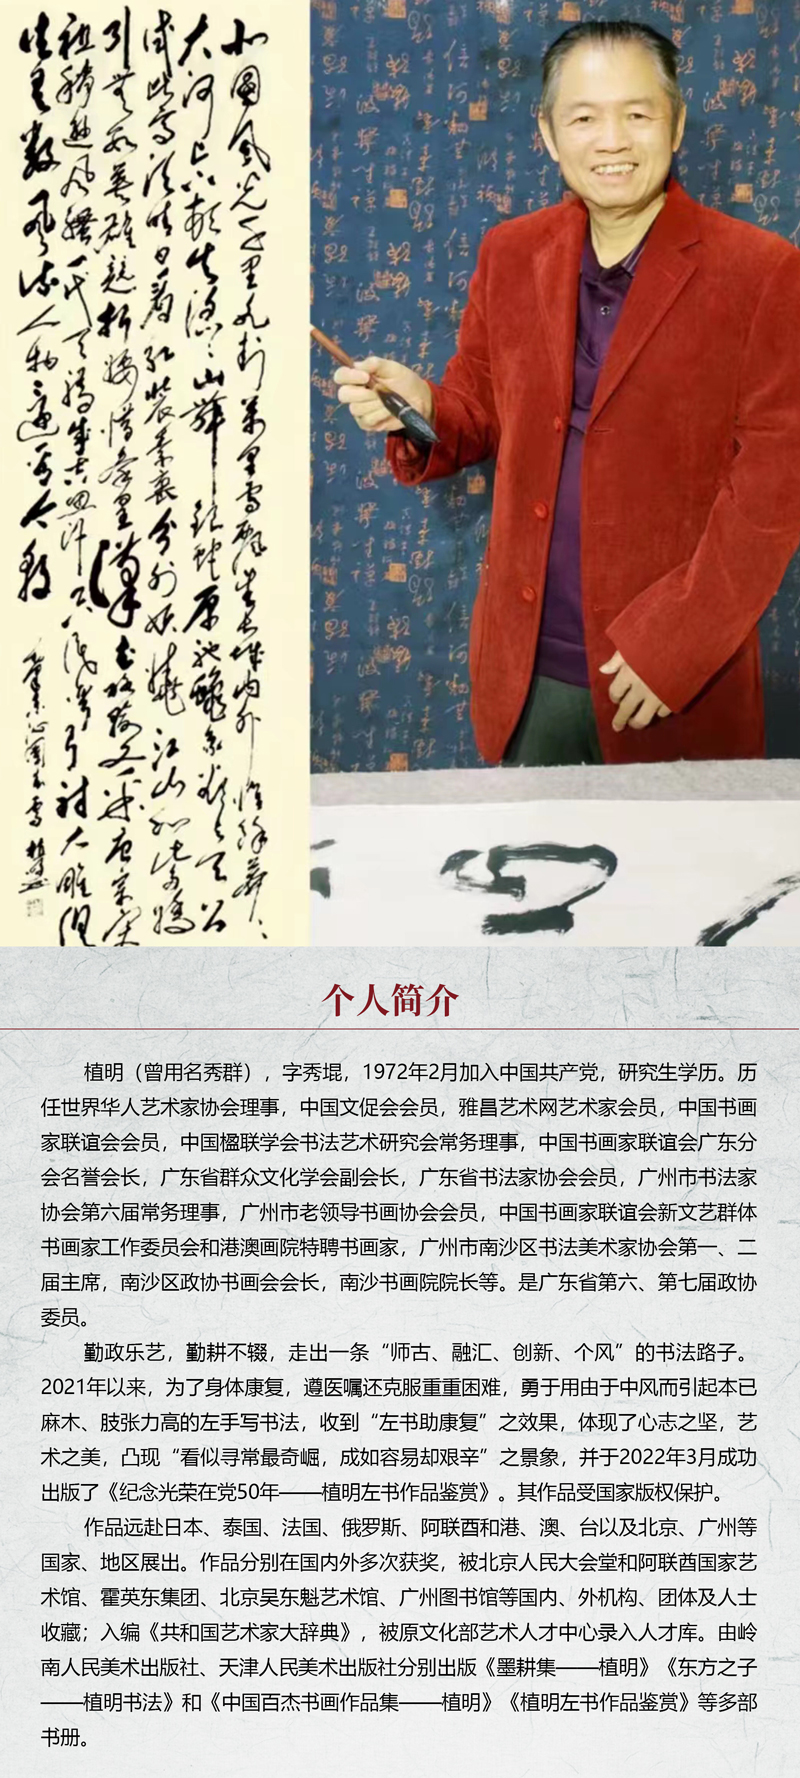 北國風光千里冰封萬里雪飄望長城内外惟餘莽〻
大河上下頓失滔〻山舞銀蛇原馳蠟象欲與天公
試比高須晴日看紅裝素裹分外妖嬈江山如此多嬌
引無數英雄競折腰惜秦皇漢武略輸文采唐宗宋
祖稍遜風騷一代天驕成吉思汗只識彎弓射大雕俱
往矣數風流人物還看今朝
沁園春雪 植明
个人简介
植明（曾用名秀群），字秀堒，1972年2月加入中国共产党，研究生学历。历
任世界华人艺术家协会理事，中国文促会会员，雅昌艺术网艺术家会员，中国书画
家联谊会会员，中国楹联学会书法艺术研究会常务理事，中国书画家联谊会广东分
会名誉会长，广东省群众文化学会副会长，广东省书法家协会会员，广州市书法家
协会第六届常务理事，广州市老领导书画协会会员，中国书画家联谊会新文艺群体
书画家工作委员会和港澳画院特聘书画家，广州市南沙区书法美术家协会第一、二
届主席，南沙区政协书画会会长，南沙书画院院长等。是广东省第六、第七届政协
委员。
勤政乐艺，勤耕不辍，走出一条“师古、融汇、创新、个风”的书法路子。
2021年以来，为了身体康复，遵医嘱还克服重重困难，勇于用由于中风而引起本已
麻木、肢张力高的左手写书法，收到“左书助康复”之效果，体现了心志之坚，艺
术之美，凸现“看似寻常最奇崛，成如容易却艰辛”之景象，并于2022年3月成功
出版了《纪念光荣在党50年——植明左书作品鉴赏》。其作品受国家版权保护。
作品远赴日本、泰国、法国、俄罗斯、阿联酉和港、澳、台以及北京、广州等
国家、地区展出。作品分别在国内外多次获奖，被北京人民大会堂和阿联酋国家艺
术馆、霍英东集团、北京吴东魁艺术馆、广州图书馆等国内、外机构、团体及人士
收藏；入编《共和国艺术家大辞典》，被原文化部艺术人才中心录入人才库。由岭
南人民美术出版社、天津人民美术出版社分别出版《墨耕集——植明》《东方之子
——植明书法》和《中国百杰书画作品集——植明》《植明左书作品鉴赏》等多部
书册。